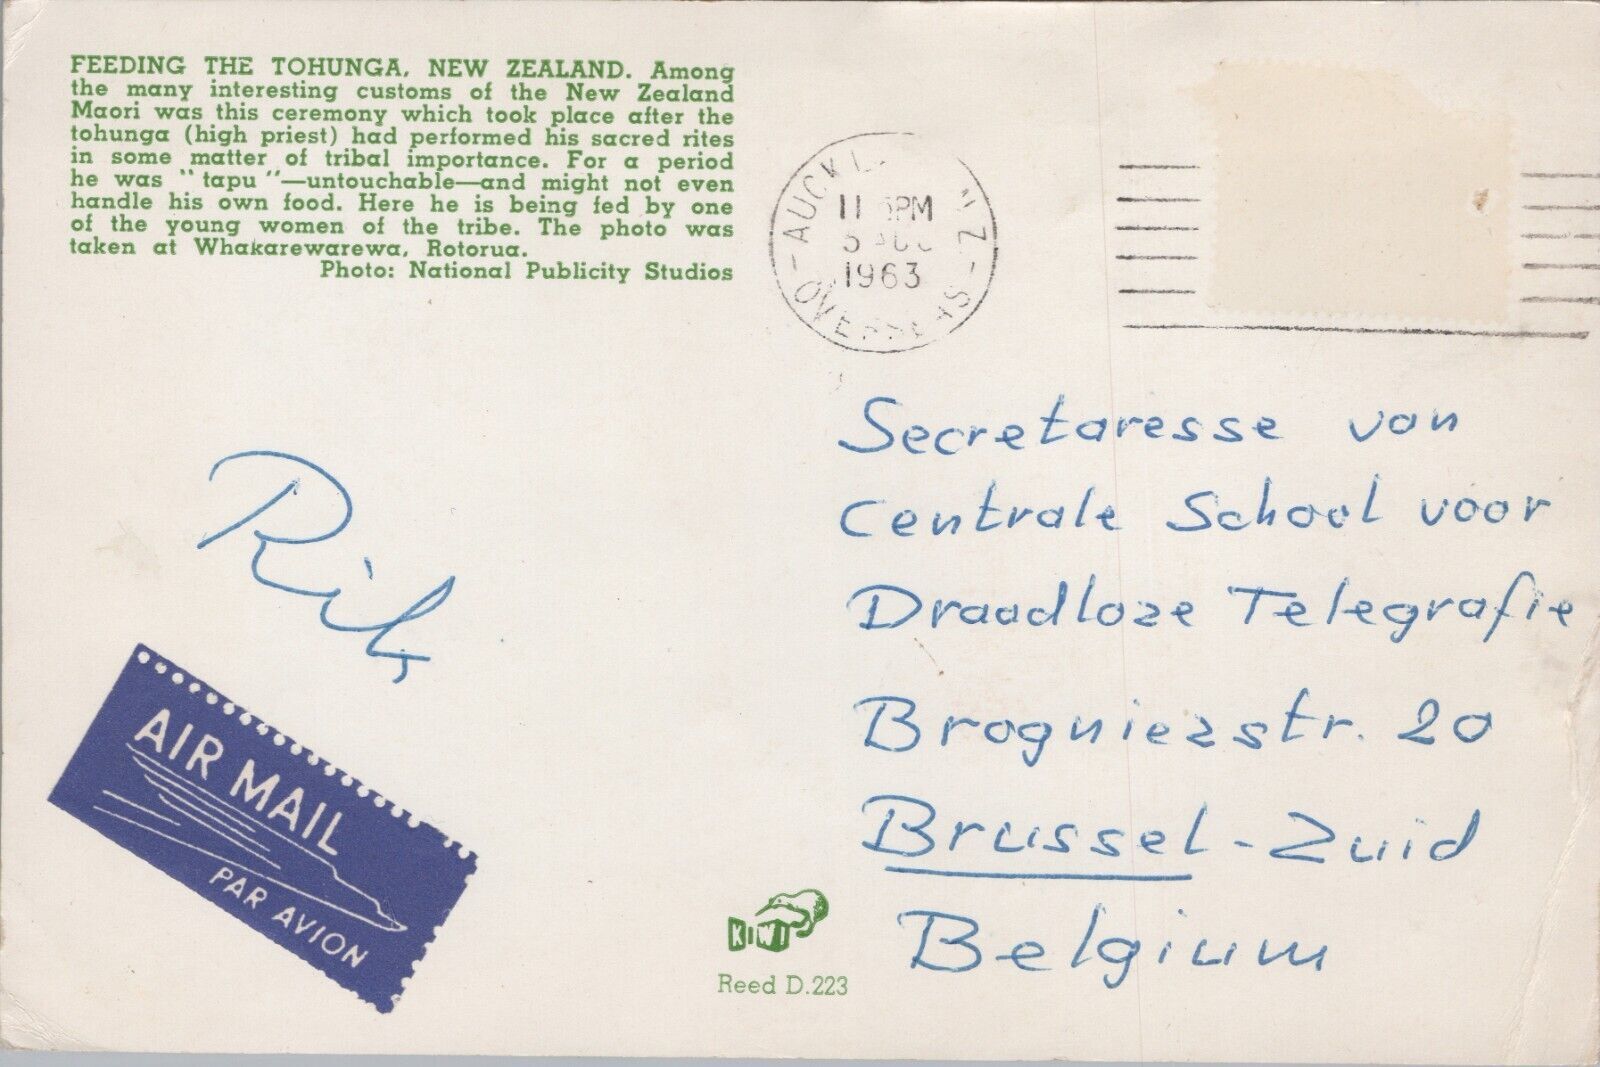 FEEDING THE TOHUNGA, NEW ZEALAND. Among
the many interesting customs of the New Zealand
Maori was this ceremony which took place after the
tohunga (high priest) had performed his sacred rites
in some matter of tribal importance. For a period
he was "tapu"—untouchable—and might not even
handle his own food. Here he is being fed by one
of the young women of the tribe. The photo was
taken at Whakarewarewa, Rotorua.
Photo: National Publicity Studios
1963
OVERSEAS
Secretaresse van
Centrale School voor
Draadloze Telegrafie
Brognierstr. 20
Brussel-Zuid
Belgium
Rik
AIR MAIL
PAR AVION
KIWI
Reed D.223